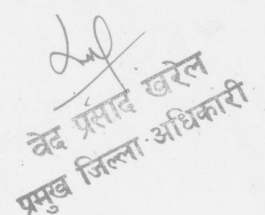 वेद प्रसाद खरेल
प्रमुख जिल्ला अधिकारी